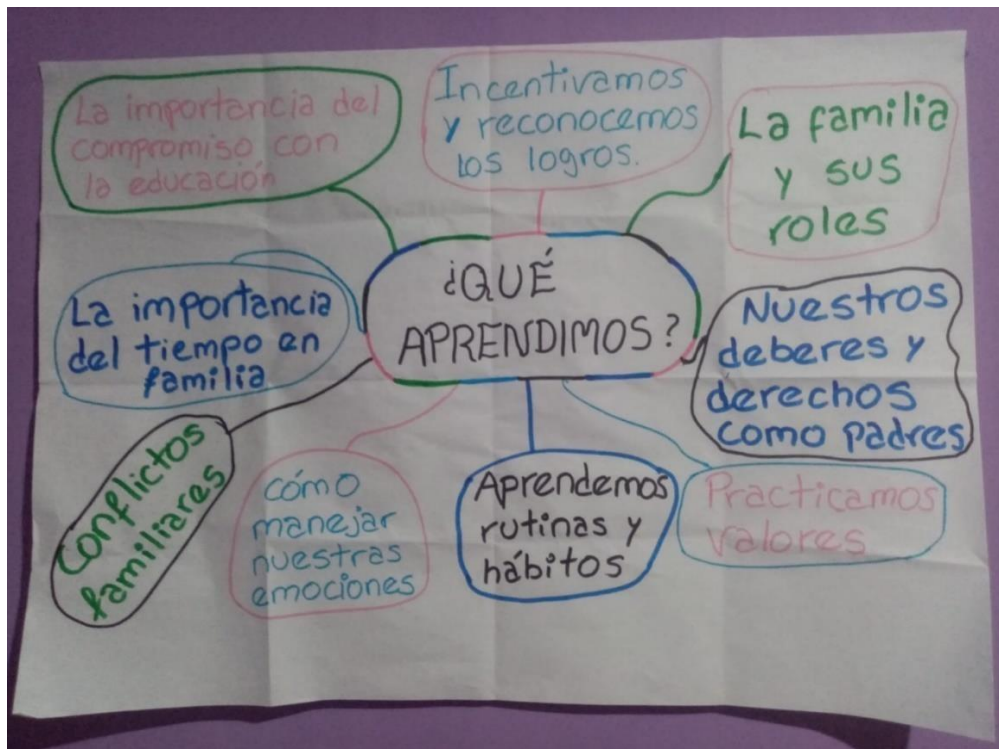 La importancia del
compromiso con
la educación
Incentivamos
y reconocemos
los logros.
La familia
y sus
roles
¿QUÉ
APRENDIMOS?
La importancia
del tiempo en
familia
Nuestros
deberes y
derechos
como padres
Conflictos
familiares
cómo
manejar
nuestras
emociones
Aprendemos
rutinas y
hábitos
Practicamos
valores